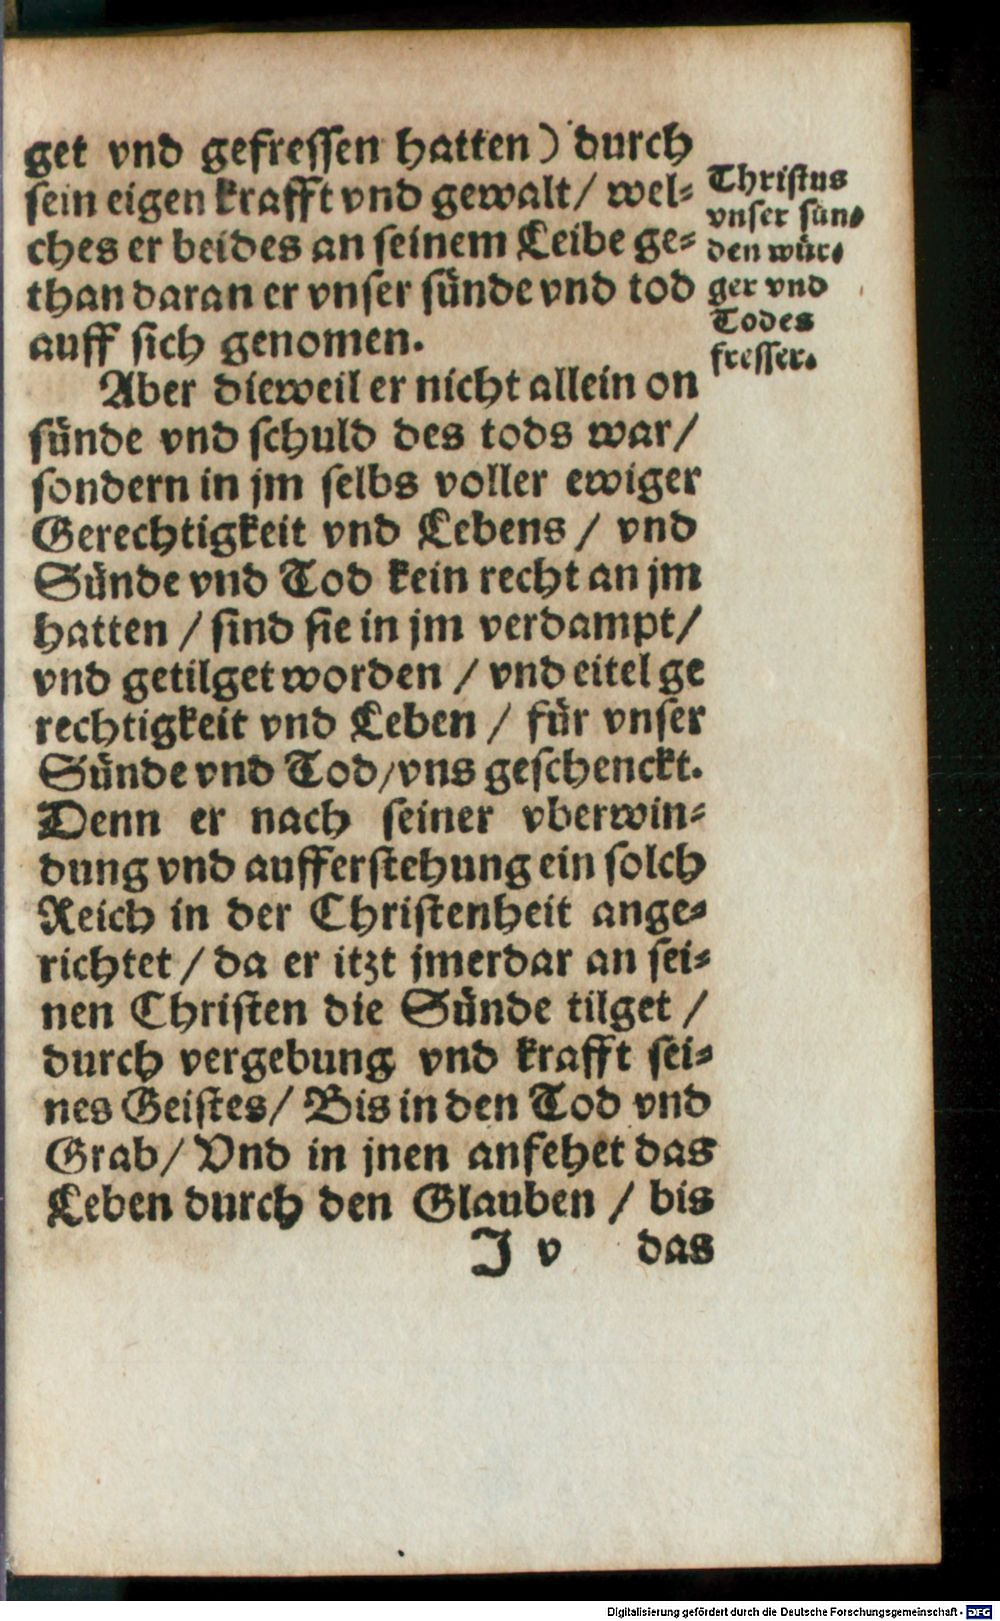 get vnd gefressen hatten) durch
sein eigen krafft vnd gewalt/ wel-
ches er beides an seinem Leibe ge-
than daran er vnser sünde vnd tod
auff sich genomen.
Aber dieweil er nicht allein on
sünde vnd schuld des tods war/
sondern in jm selbs voller ewiger
Gerechtigkeit vnd Lebens / vnd
Sünde vnd Tod kein recht an jm
hatten / sind sie in jm verdampt/
vnd getilget worden / vnd eitel ge
rechtigkeit vnd Leben / für vnser
Sünde vnd Tod/vns geschenckt.
Denn er nach seiner vberwin-
dung vnd aufferstehung ein solch
Reich in der Christenheit ange-
richtet / da er itzt jmerdar an sei-
nen Christen die Sünde tilget /
durch vergebung vnd krafft sei-
nes Geistes/ Bis in den Tod vnd
Grab/ Vnd in jnen anfehet das
Leben durch den Glauben / bis
J v das
Christus
vnser sün-
den wür-
ger vnd
Todes
fresser.
Digitalisierung gefördert durch die Deutsche Forschungsgemeinschaft - DFG